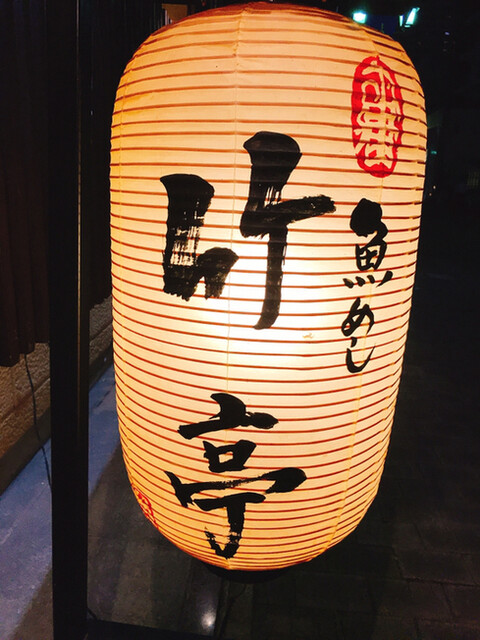 魚めし
竹亭